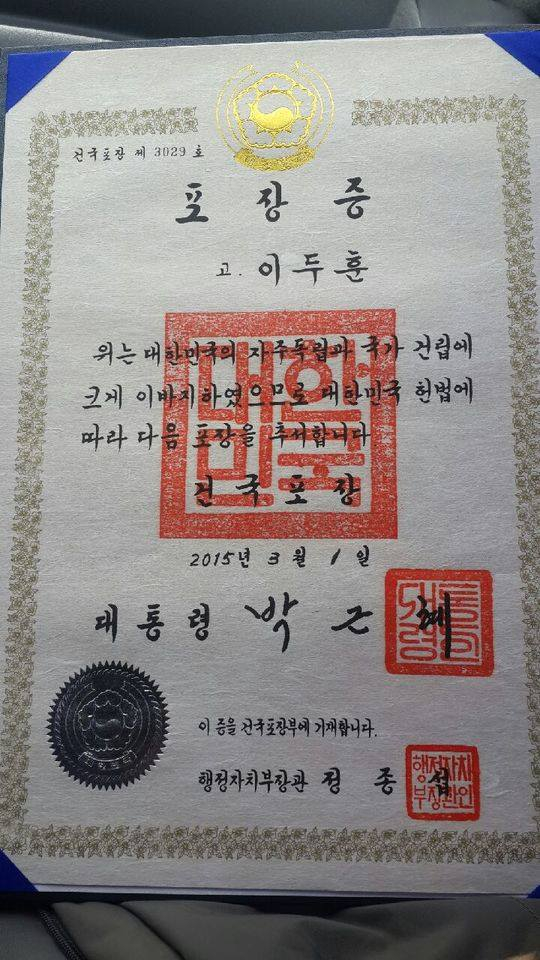 건국포장 제 3029 호
포장증
고. 이두훈
위는 대한민국의 자주독립과 국가 건립에
크게 이바지하였으므로 대한민국 헌법에
따라 다음 포장을 추서합니다
건국포장
대한민국
2015년 3월 1일
대통령 박근혜
이 증을 건국포장부에 기재합니다.
행정자치부장관 정종섭
행정자치
부장관인